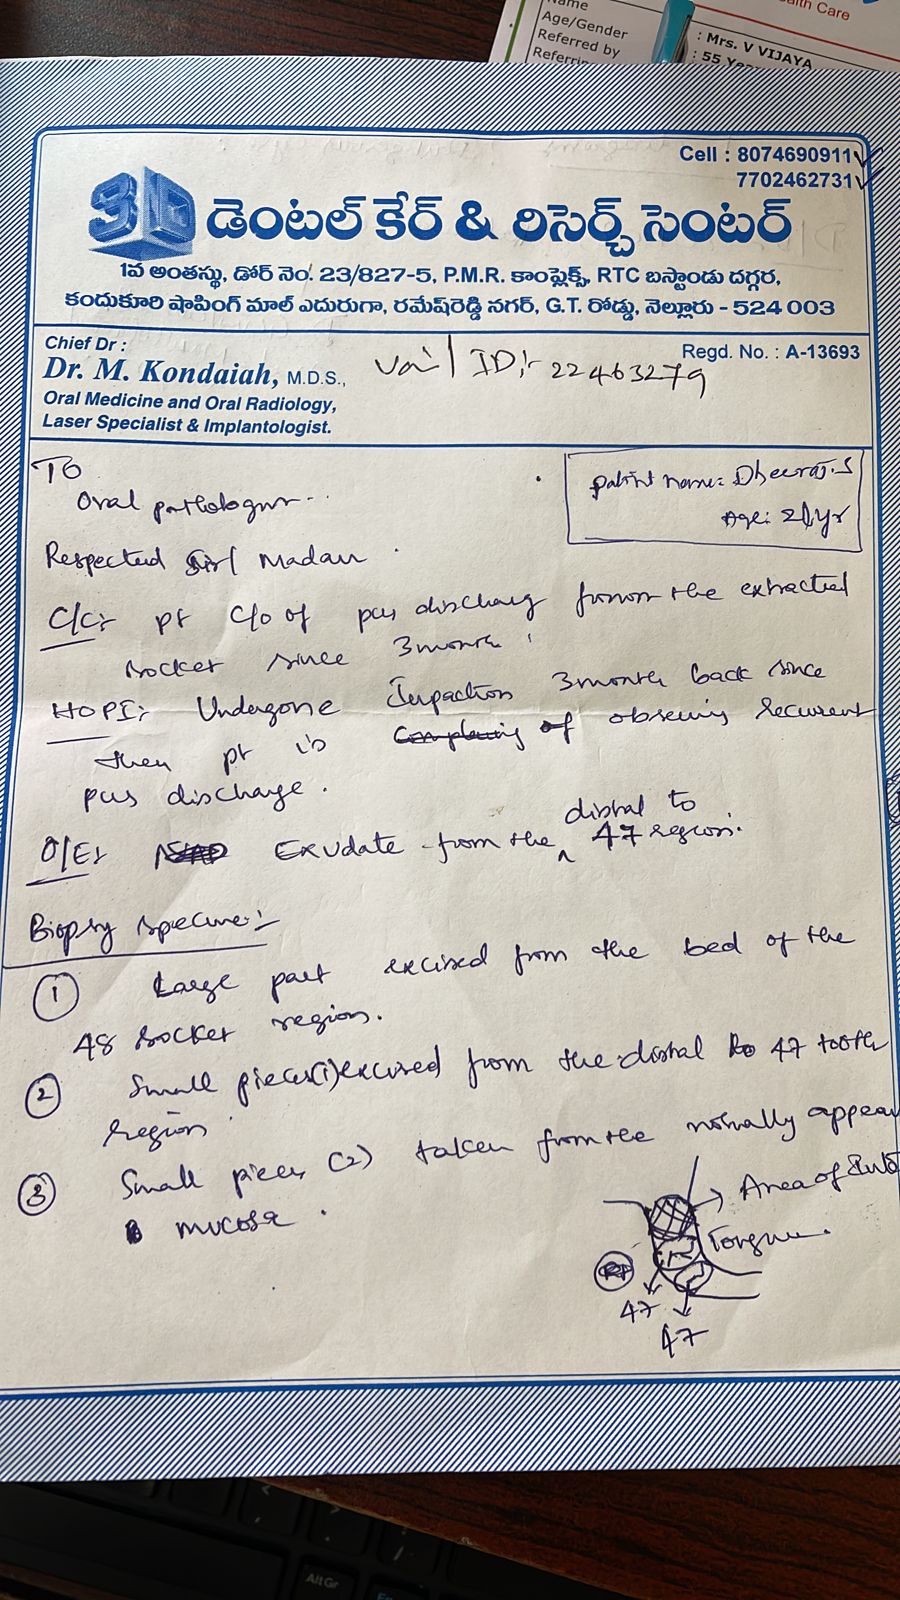 Name
Age/Gender
Referred by
: Mrs. V VIJAYA
: 55
alth Care
Cell : 8074690911
7702462731
3D డెంటల్ కేర్ & రిసెర్చ్ సెంటర్
1వ అంతస్తు, డోర్ నెం. 23/827-5, P.M.R. కాంప్లెక్స్, RTC బస్టాండు దగ్గర,
కందుకూరి షాపింగ్ మాల్ ఎదురుగా, రమేష్‌రెడ్డి నగర్, G.T. రోడ్డు, నెల్లూరు - 524 003
Chief Dr :
Dr. M. Kondaiah, M.D.S.,
Oral Medicine and Oral Radiology,
Laser Specialist & Implantologist.
Vail ID:- 22463279
Regd. No. : A-13693
To
Oral pathologist..
patient name: Dheeraj.S
Age: 21yr
Respected Sir/ Madam
C/C:- pt C/o of pus discharg from the extracted
socket since 3month
HOPI:- Undergone Impaction 3month back since
then pt is of observing recurrent
pus discharge.
O/E:- Exudate from the distal to 47 region.
Biopsy specimen:-
1 Large part excised from the bed of the
48 socket region.
2 Small pieces(1) excised from the distal to 47 tooth
region
3 Small pieces (2) taken from the normally appear
mucosa.
Area of
Tongue.
47
47
Alt Gr